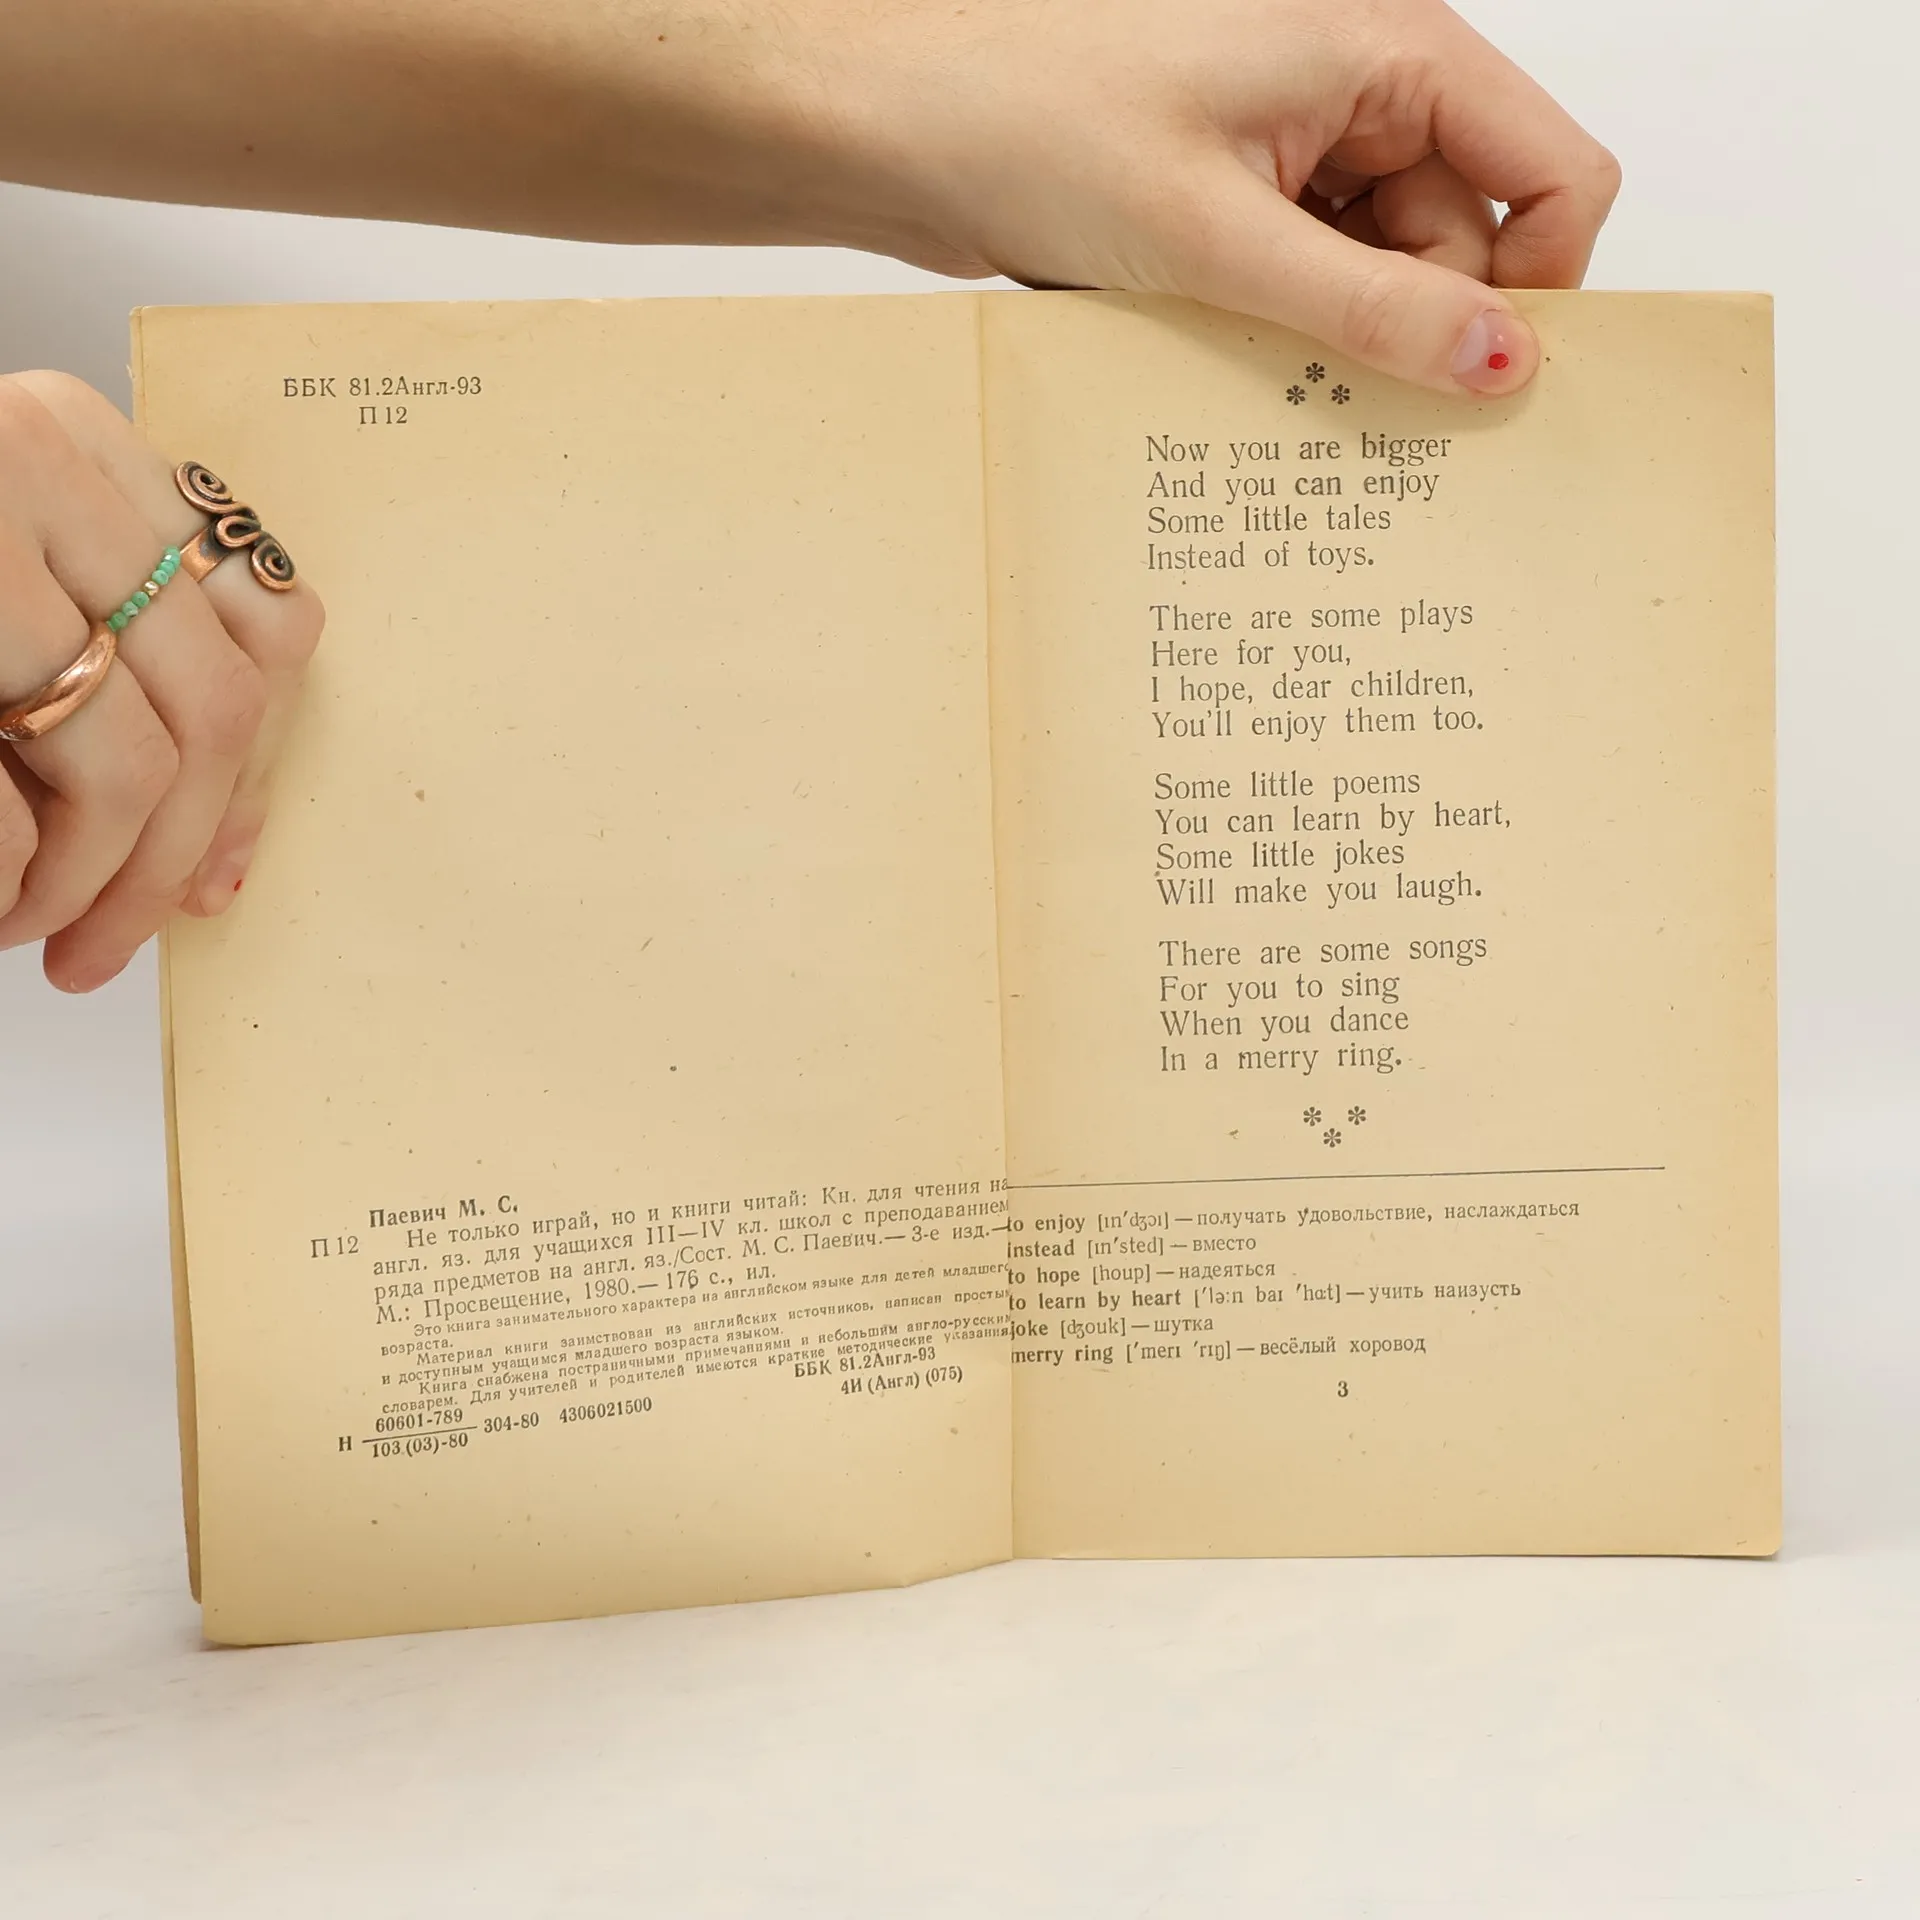 ББК 81.2Англ-93
П 12
Паевич М. С.
П 12 Не только играй, но и книги читай: Кн. для чтения на
англ. яз. для учащихся III—IV кл. школ с преподаванием
ряда предметов на англ. яз./Сост. М. С. Паевич.— 3-е изд.—
М.: Просвещение, 1980.— 176 с., ил.
Это книга занимательного характера на английском языке для детей младшего
возраста.
Материал книги заимствован из английских источников, написан простым
и доступным учащимся младшего возраста языком.
Книга снабжена постраничными примечаниями и небольшим англо-русским
словарем. Для учителей и родителей имеются краткие методические указания.
60601-789
Н 304-80 4306021500
103(03)-80
ББК 81.2Англ-93
4И (Англ) (075)
Now you are bigger
And you can enjoy
Some little tales
Instead of toys.
There are some plays
Here for you,
I hope, dear children,
You'll enjoy them too.
Some little poems
You can learn by heart,
Some little jokes
Will make you laugh.
There are some songs
For you to sing
When you dance
In a merry ring.
to enjoy [ın'dʒɔı] — получать удовольствие, наслаждаться
instead [ın'sted] — вместо
to hope [houp] — надеяться
to learn by heart ['lə:n baı 'hɑt] — учить наизусть
joke [dʒouk] — шутка
merry ring ['merı 'rıŋ] — весёлый хоровод
3